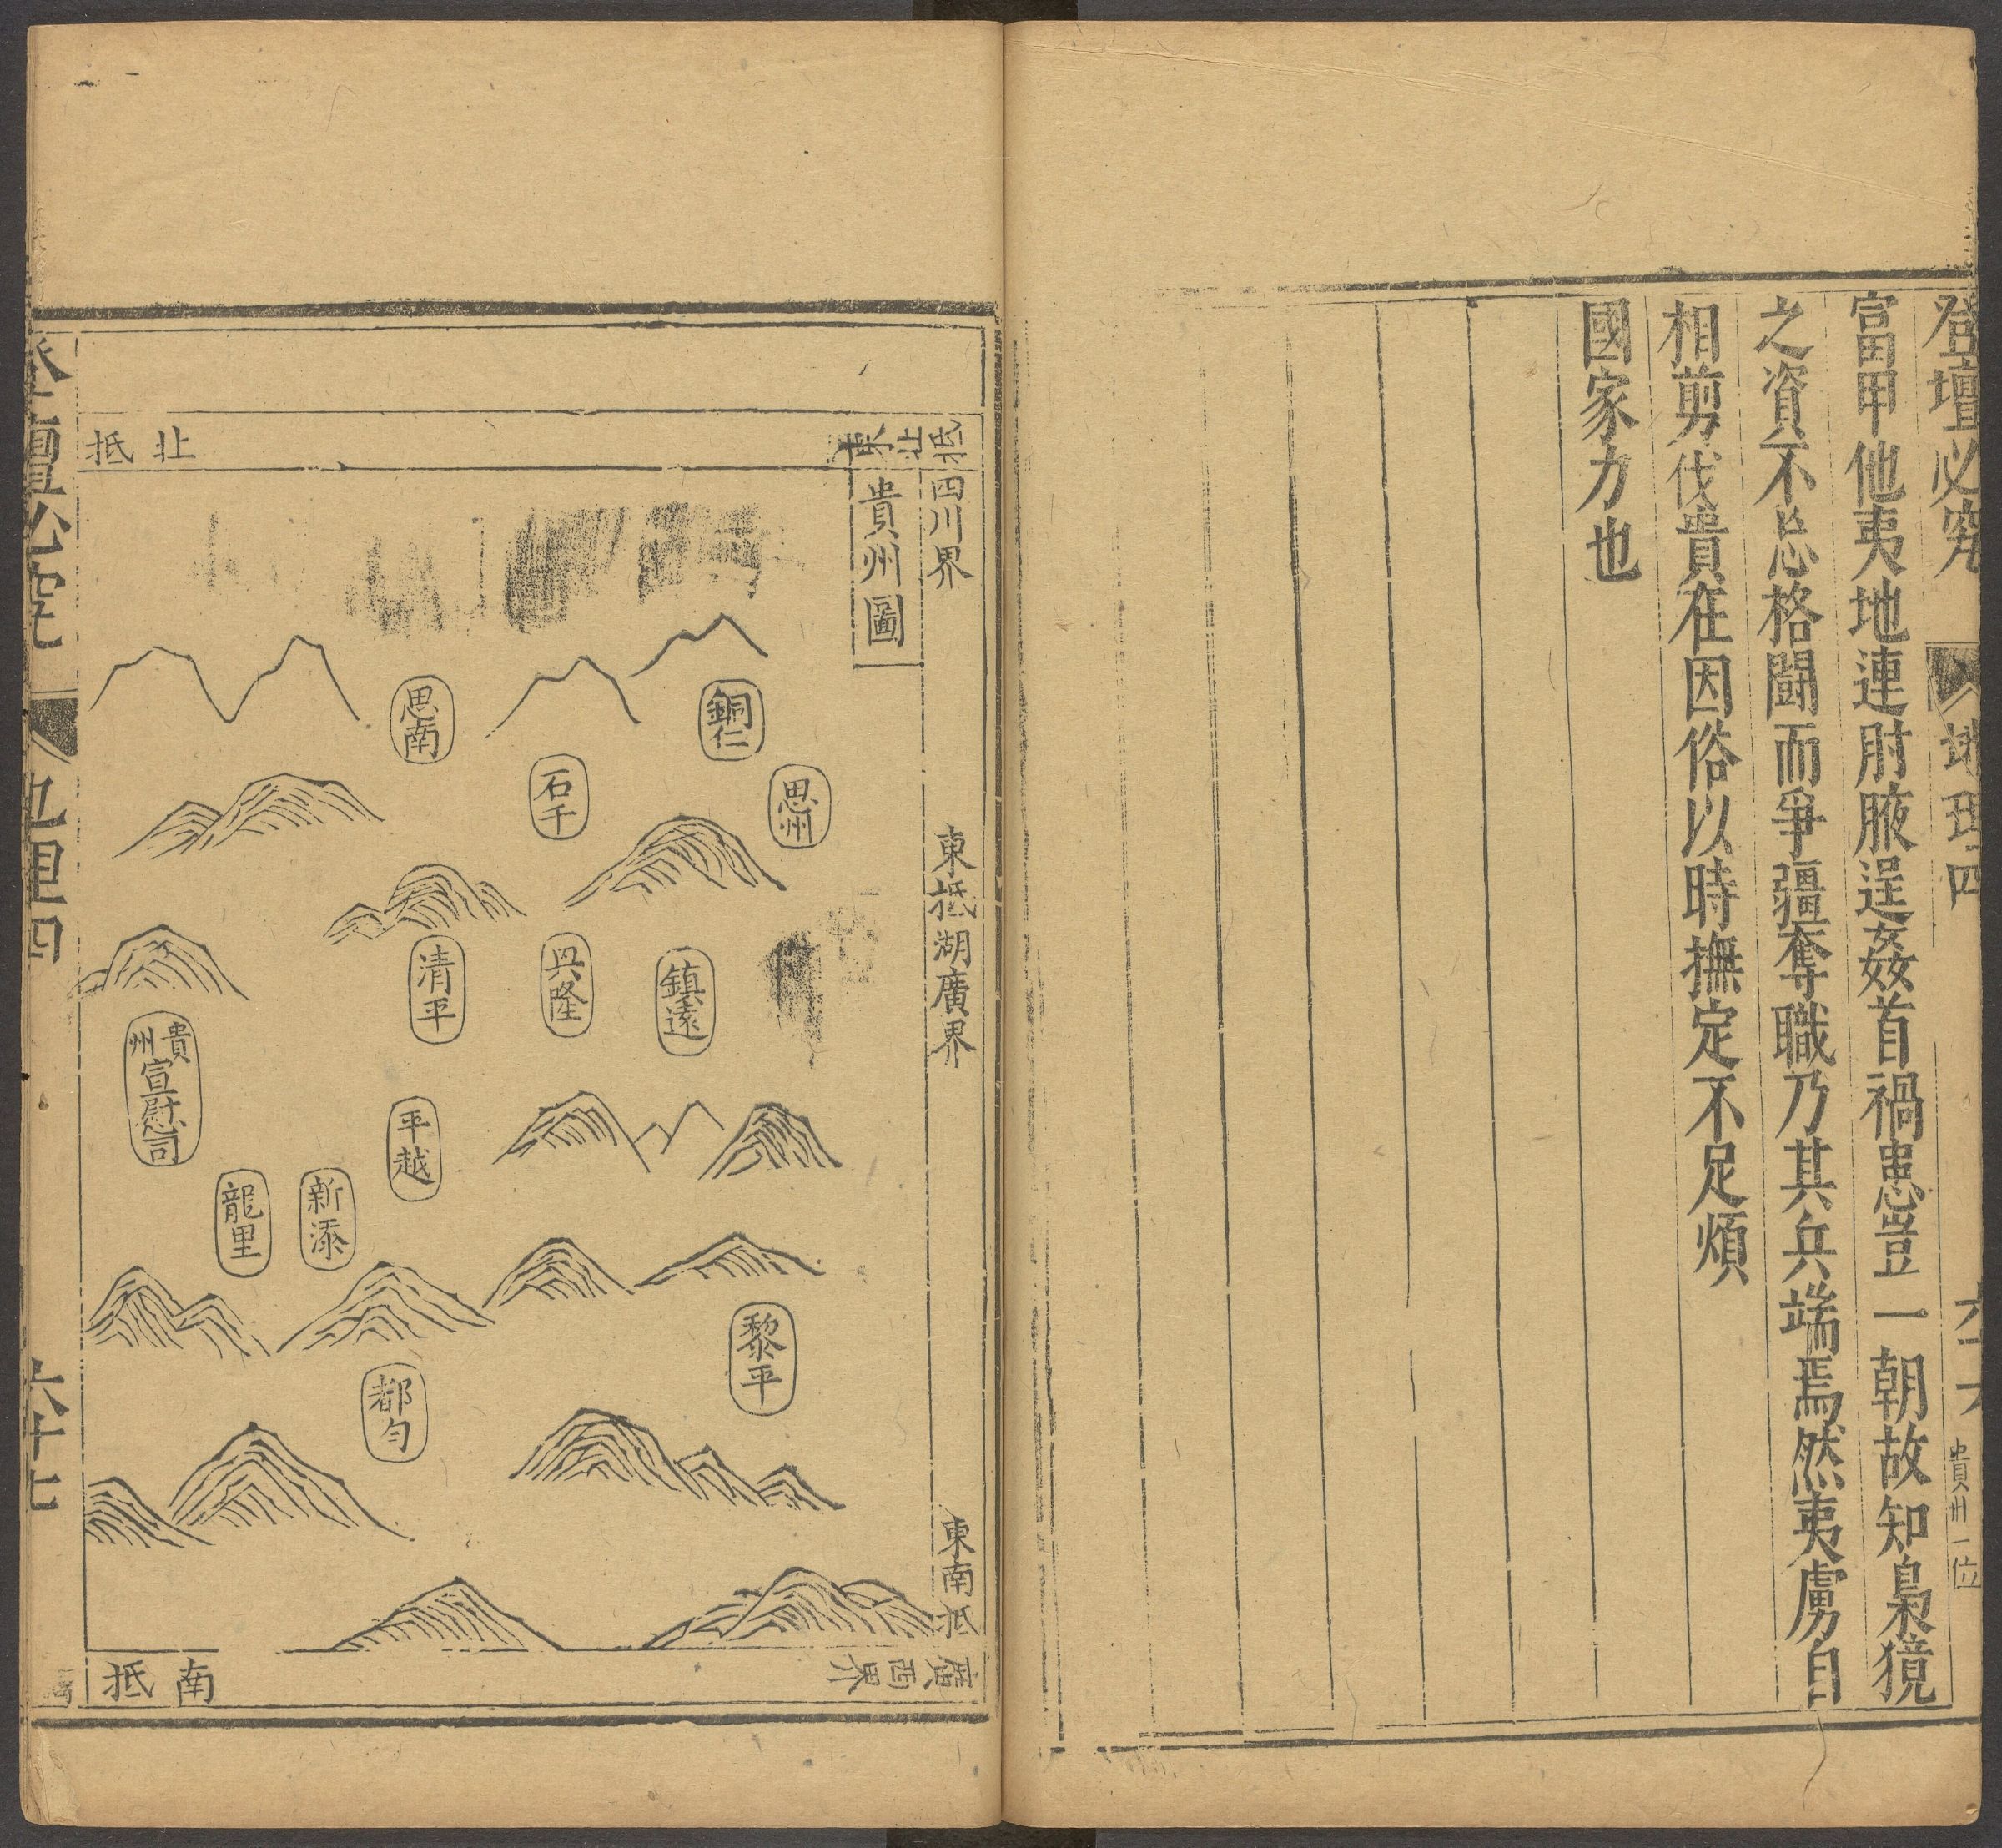 登壇必究
地理四
六十六
貴州一位
富甲他夷地連肘腋逞姦首禍患豈一朝故知梟獍
之資不忘格鬪而爭疆奪職乃其兵端焉然夷虜自
相剪伐貴在因俗以時撫定不足煩
國家力也
東北抵
四川界
東抵湖廣界
東南抵
廣西界
貴州圖
北抵
銅仁
思州
思南
石千
鎮遠
興隆
清平
貴州宣慰司
平越
新添
龍里
黎平
都勻
南抵
登壇必究
地理四
六十七